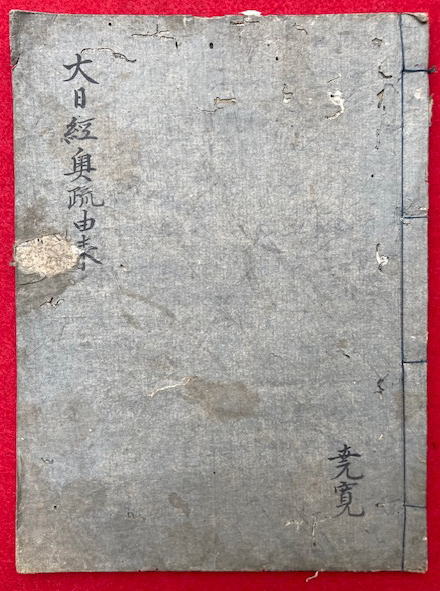 大日經奥疏由来
尭寛